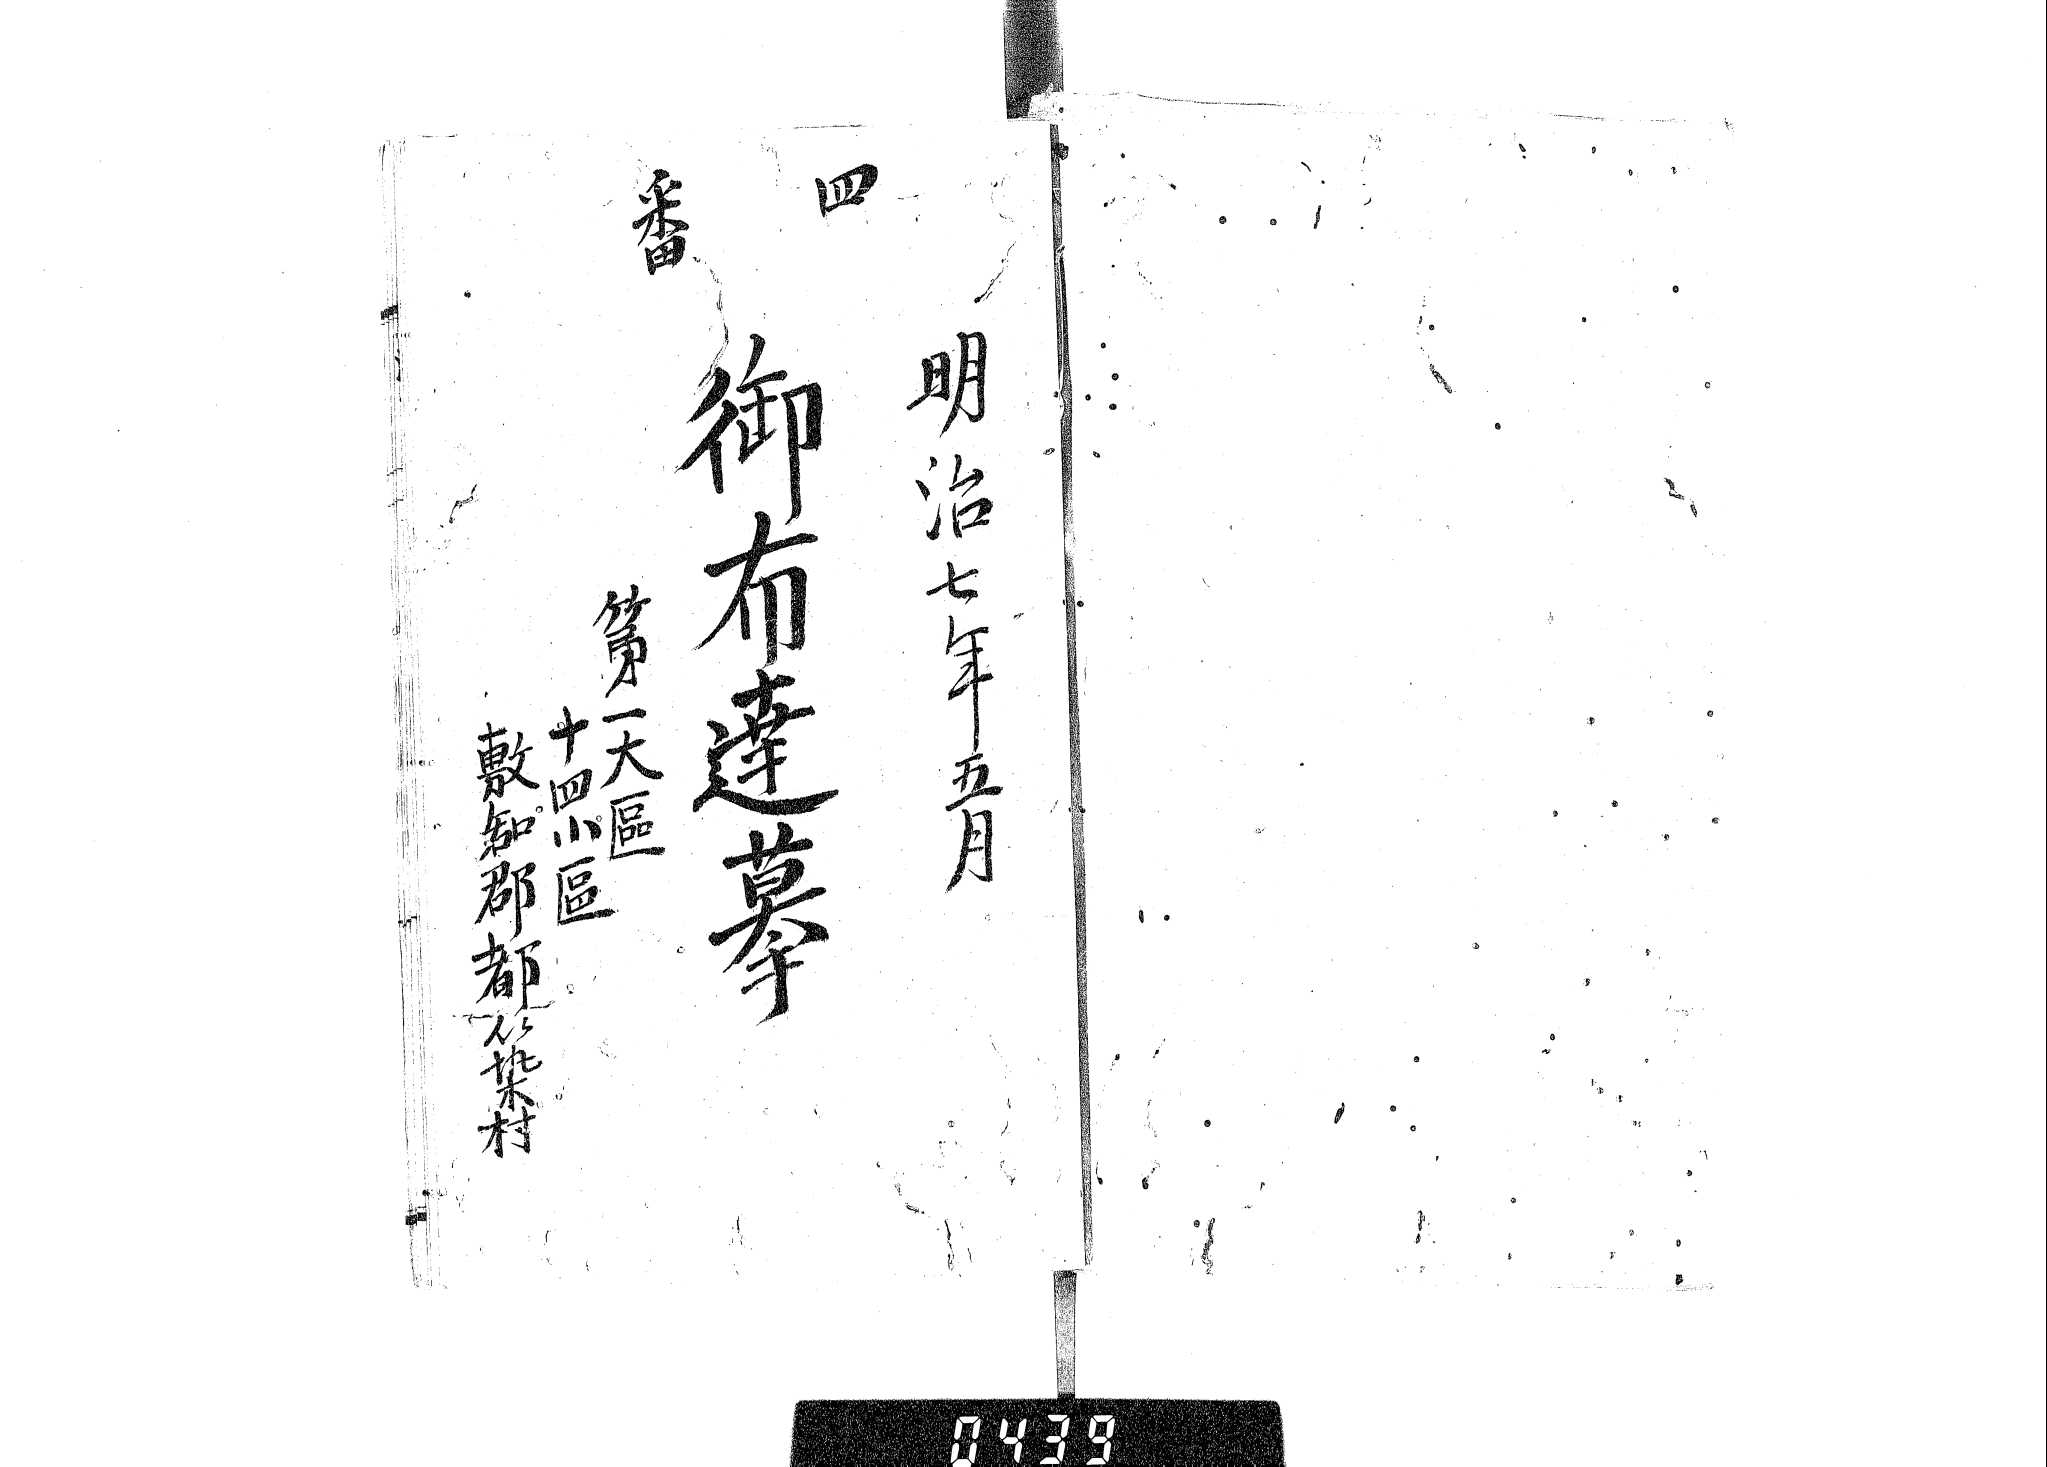 四番
明治七年五月
御布達摹
第一大區
十四小區
敷知郡都築村
0439